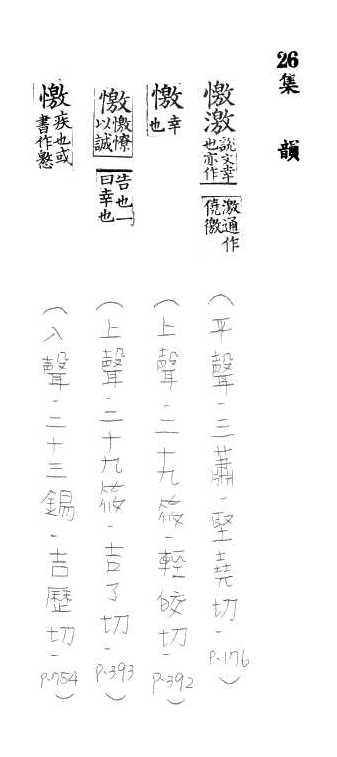 26
集韻
憿激 說文幸也亦作 激通作僥徼
(平聲.三蕭.堅堯切.P.176)
憿 幸也
(上聲.二十九筱.輕皎切.P.392)
憿 憿憭以誠告也一曰幸也
(上聲.二十九筱.吉了切.P.393)
憿 疾也或書作憿
(入聲.二十三錫.吉歷切.P.754)